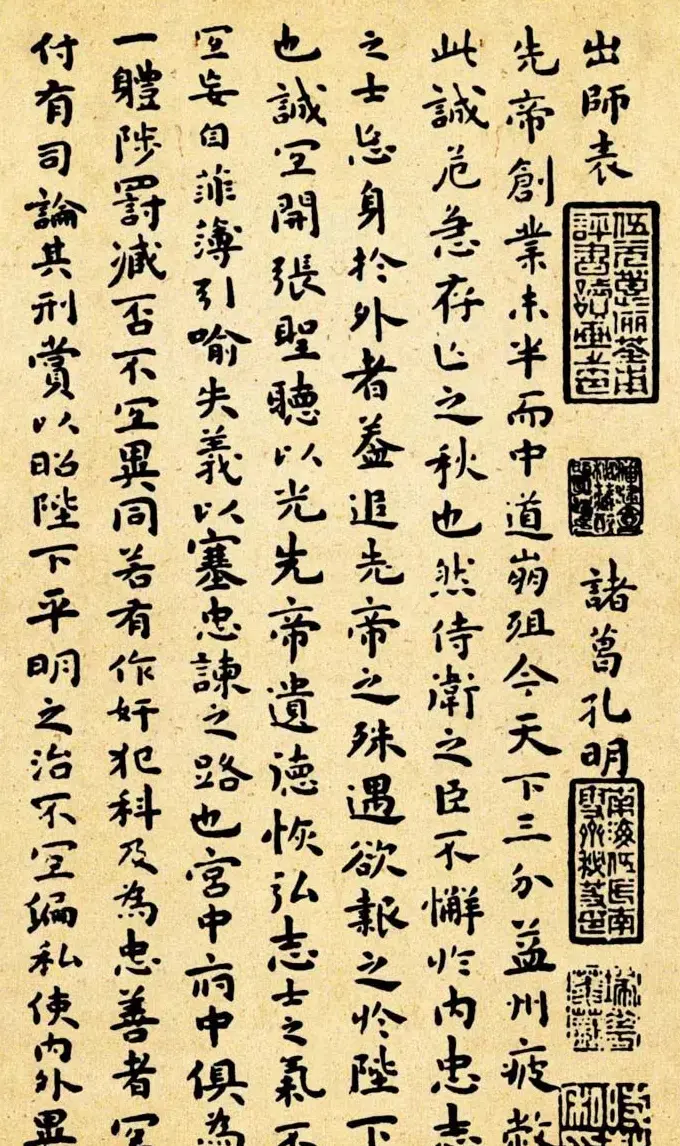 出師表 諸葛孔明
南海伍氏南雪齋秘笈印
先帝創業未半而中道崩殂今天下三分益州疲敝
此誠危急存亡之秋也然侍衛之臣不懈於内忠志
之士忘身於外者蓋追先帝之殊遇欲報之於陛下
也誠宜開張聖聽以光先帝遺德恢弘志士之氣不
宜妄自菲薄引喻失義以塞忠諫之路也宮中府中俱為
一體陟罰臧否不宜異同若有作奸犯科及為忠善者宜
付有司論其刑賞以昭陛下平明之治不宜偏私使內外異